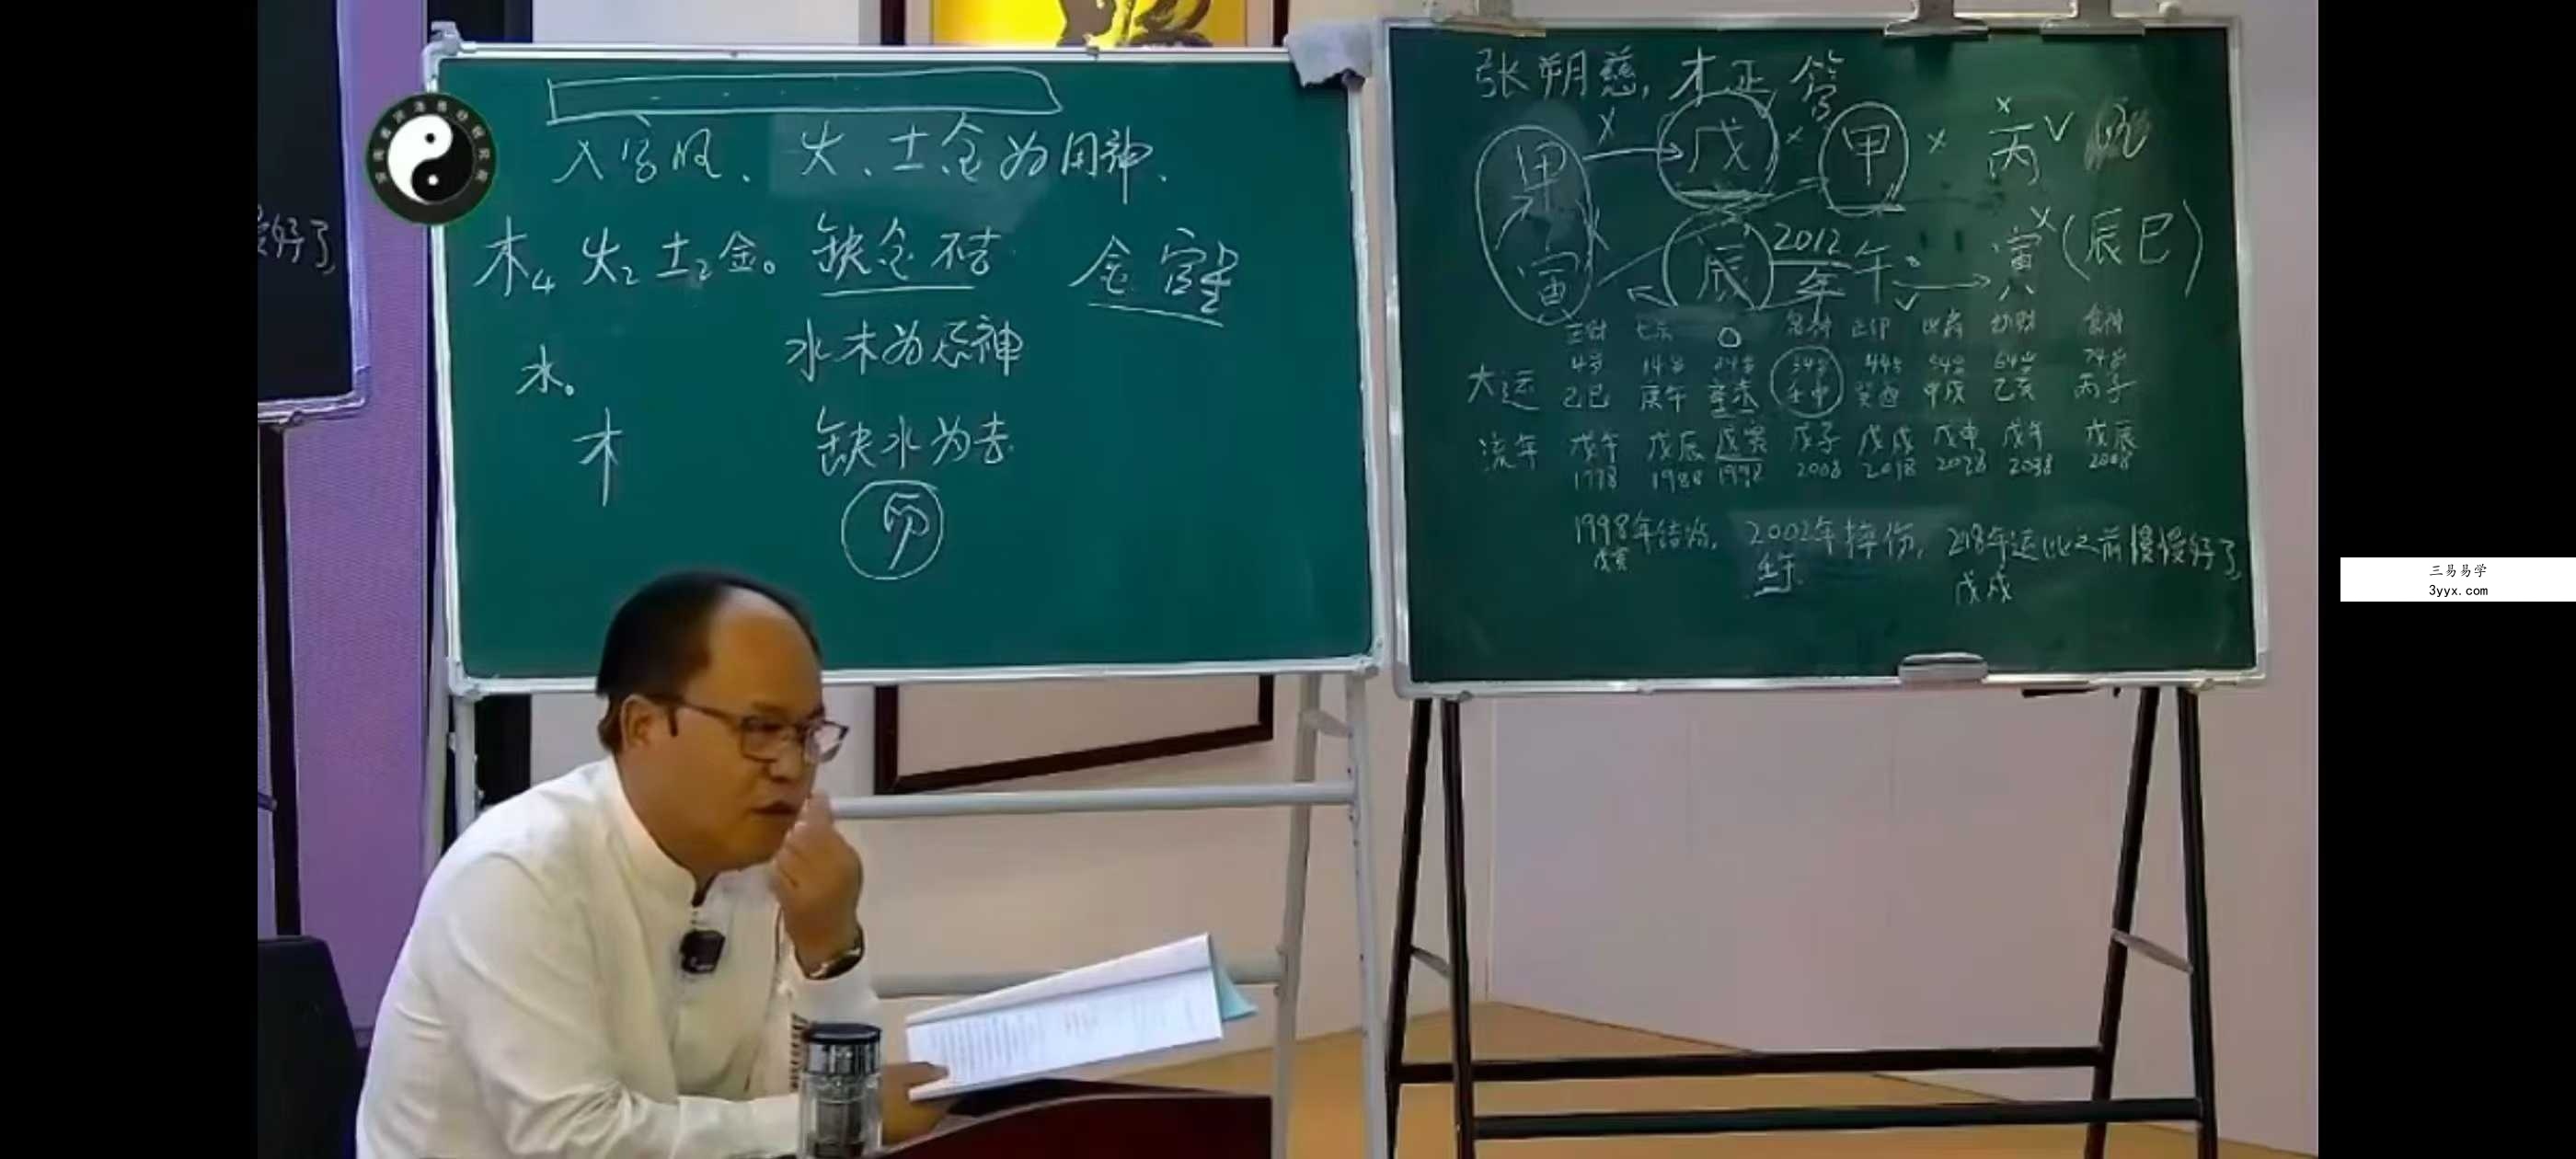 入官凤、火、土金为用神、
木4 火2 土2 金0 缺金不吉 金官
水0
水木为忌神
木
缺水为吉
张朔慈, 木正
甲 戊 甲 丙
寅 辰 2012年 午 寅 (辰巳)
4岁 14岁 24岁 34岁 44岁 54岁 64岁 74岁
大运 己巳 庚午 辛未 壬申 癸酉 甲戌 乙亥 丙子
流年 戊午 戊辰 戊寅 戊子 戊戌 戊申 戊午 戊辰
1978 1988 1998 2008 2018 2028 2038 2048
1998年结婚, 2002年摔伤, 218年运比之前慢慢好了,
戊寅 壬午 戊戌
慢好了,
三易易学
3yyx.com